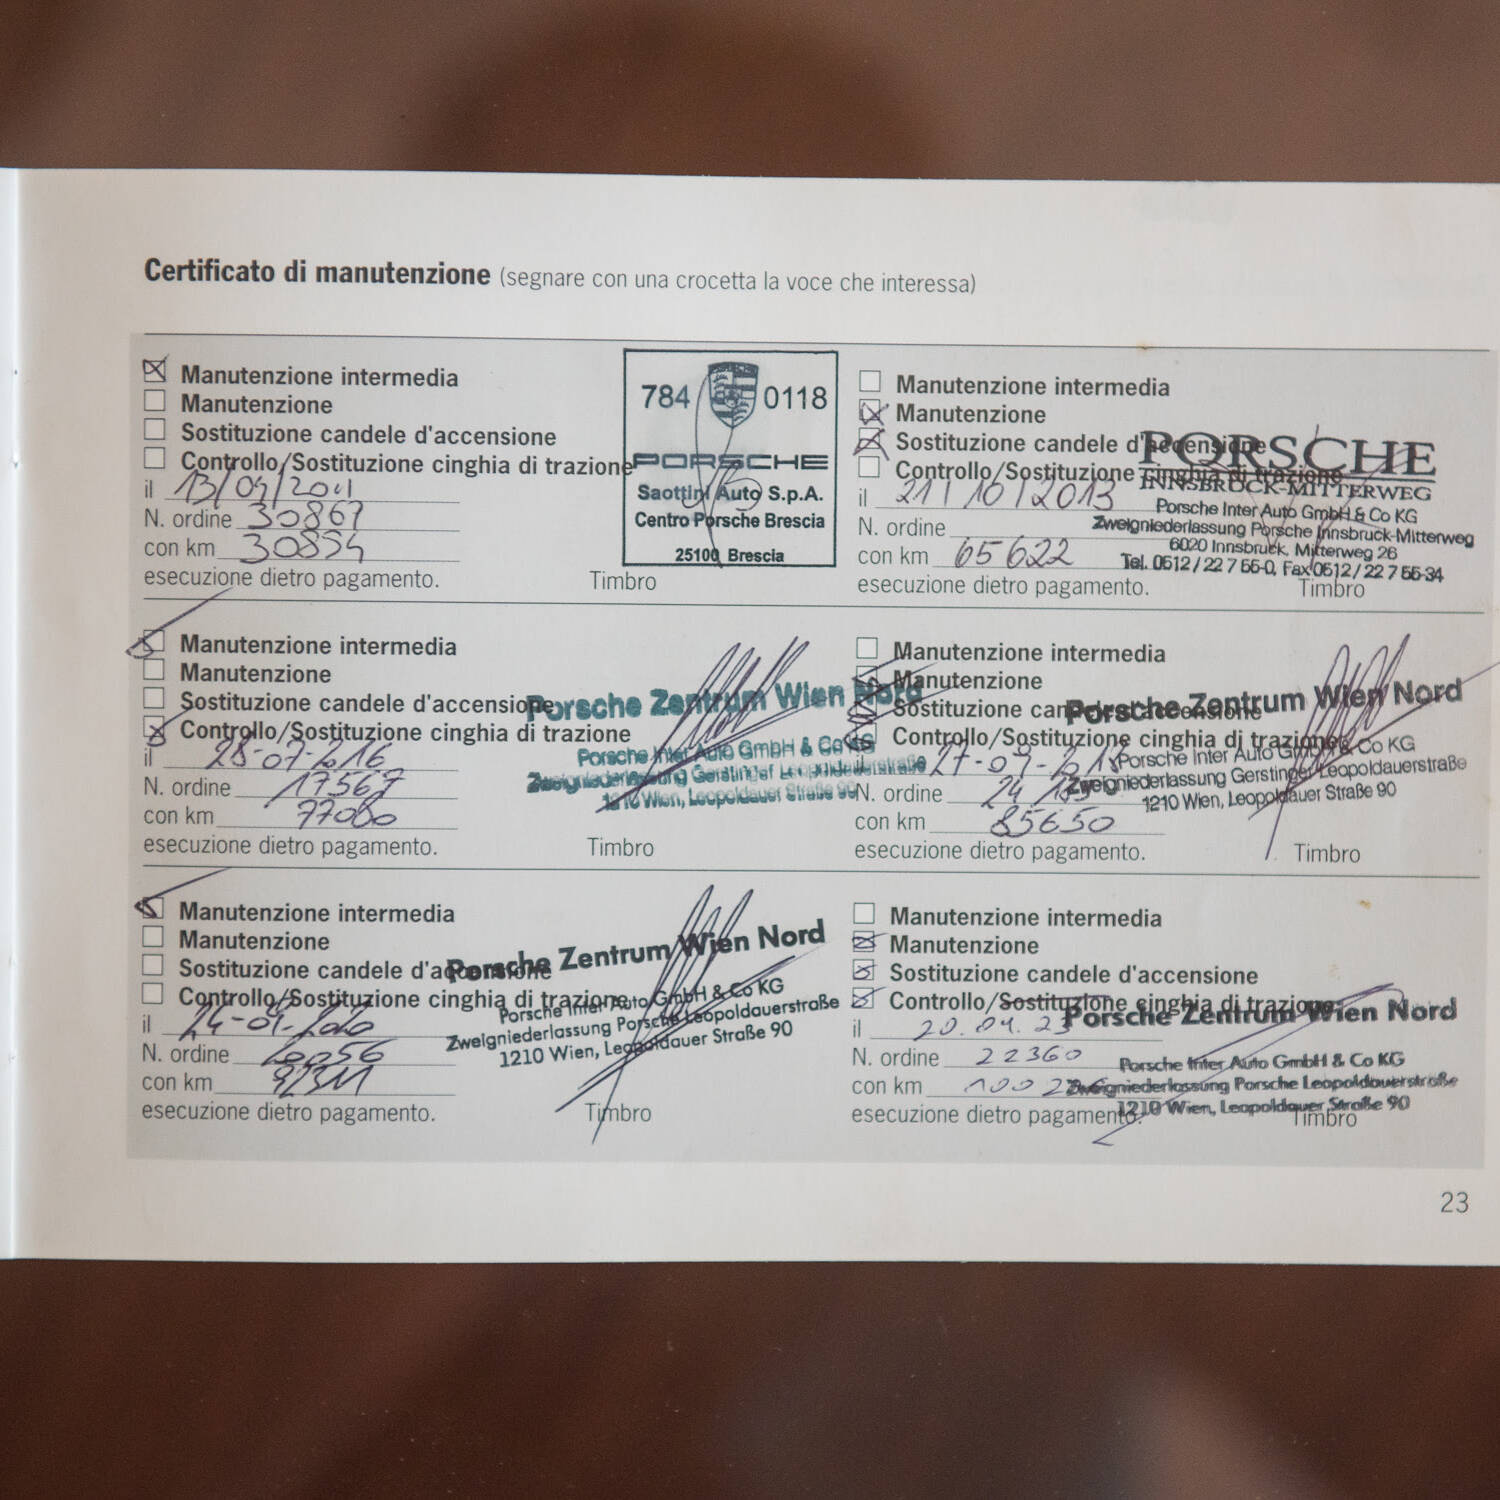 Certificato di manutenzione (segnare con una crocetta la voce che interessa)
Manutenzione intermedia
Manutenzione
Sostituzione candele d'accensione
Controllo/Sostituzione cinghia di trazione
il 13/04/2011
N. ordine 30867
con km 30854
esecuzione dietro pagamento.
Timbro
784 0118
PORSCHE
Saottini Auto S.p.A.
Centro Porsche Brescia
25100 Brescia
Manutenzione intermedia
Manutenzione
Sostituzione candele d'accensione
Controllo/Sostituzione cinghia di trazione
il 21/10/2013
N. ordine
con km 65622
esecuzione dietro pagamento.
Timbro
PORSCHE
INNSBRUCK-MITTERWEG
Porsche Inter Auto GmbH & Co KG
Zweigniederlassung Porsche Innsbruck-Mitterweg
6020 Innsbruck, Mitterweg 26
Tel. 0512/22 7 55-0, Fax 0512/22 7 55-34
Manutenzione intermedia
Manutenzione
Sostituzione candele d'accensione
Controllo/Sostituzione cinghia di trazione
il 28-07-2016
N. ordine 17567
con km 77000
esecuzione dietro pagamento.
Timbro
Porsche Zentrum Wien Nord
Porsche Inter Auto GmbH & Co KG
Zweigniederlassung Gerstinger Leopoldauerstraße
1210 Wien, Leopoldauer Straße 90
Manutenzione intermedia
Manutenzione
Sostituzione candele d'accensione
Controllo/Sostituzione cinghia di trazione
il 27-09-2018
N. ordine 24
con km 85650
esecuzione dietro pagamento.
Timbro
Porsche Zentrum Wien Nord
Porsche Inter Auto GmbH & Co KG
Zweigniederlassung Gerstinger Leopoldauerstraße
1210 Wien, Leopoldauer Straße 90
Manutenzione intermedia
Manutenzione
Sostituzione candele d'accensione
Controllo/Sostituzione cinghia di trazione
il 24-09-2020
N. ordine 20056
con km 92311
esecuzione dietro pagamento.
Timbro
Porsche Zentrum Wien Nord
Porsche Inter Auto GmbH & Co KG
Zweigniederlassung Porsche Leopoldauerstraße
1210 Wien, Leopoldauer Straße 90
Manutenzione intermedia
Manutenzione
Sostituzione candele d'accensione
Controllo/Sostituzione cinghia di trazione
il 20.04.23
N. ordine 22360
con km
esecuzione dietro pagamento.
Timbro
Porsche Zentrum Wien Nord
Porsche Inter Auto GmbH & Co KG
Zweigniederlassung Porsche Leopoldauerstraße
1210 Wien, Leopoldauer Straße 90
23